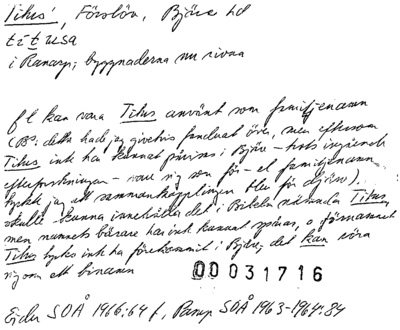 Titus', Förslöv, Bjäre hd
títusa
i Ranarp; byggnaderna nu rivna
f l kan vara Titus använt som familjenamn
(Bs: detta hade jag givetvis funderat över, men eftersom
Titus ink ha kunnat påvisas i Bjäre – trots ingående
efterforskningar – vare sig som för- el familjenamn
tyckte jag att sammankopplingen blev för djärv).
skulle kunna innehålla det i Bibeln nämnda Titus,
men namnets bärare har ink kunnat spåras, o förnamnet
Titus tycks ink ha förekommit i Bjäre; det kan röra
sig om ett binamn
00031716
Ejder SOÅ 1966:64 f, Pamp SOÅ 1963-1964:84